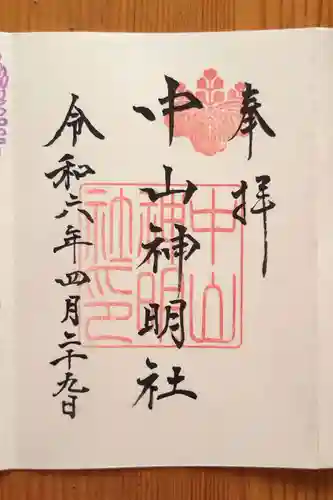 奉拝
中山神明社
令和六年四月二十九日
中山神明社印